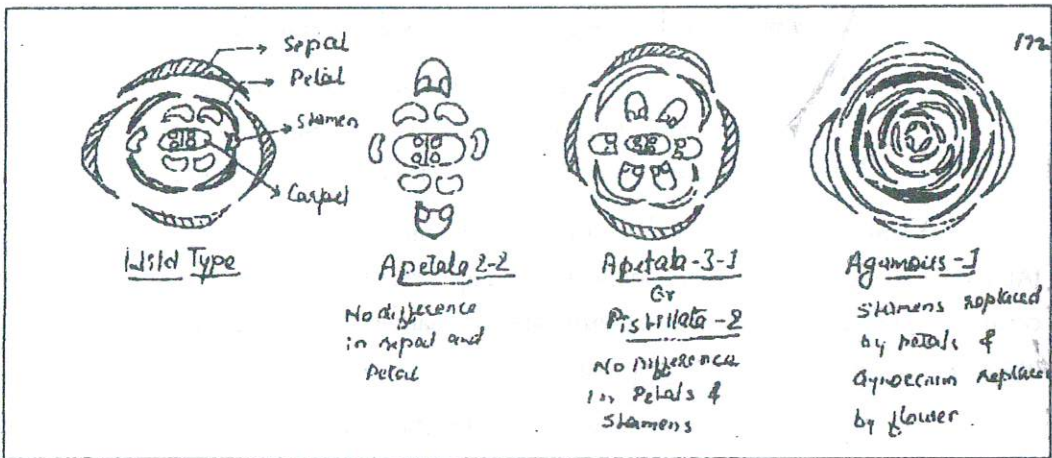 Sepal
Petal
Stamen
Carpel
Wild Type
Apetala 2-2
No difference
in sepal and
Petal
Apetala-3-1
Or
Pistillata-2
No Difference
in Petals &
Stamens
Agamous-1
Stamens replaced
by petals &
Gynoecium replaced
by flower